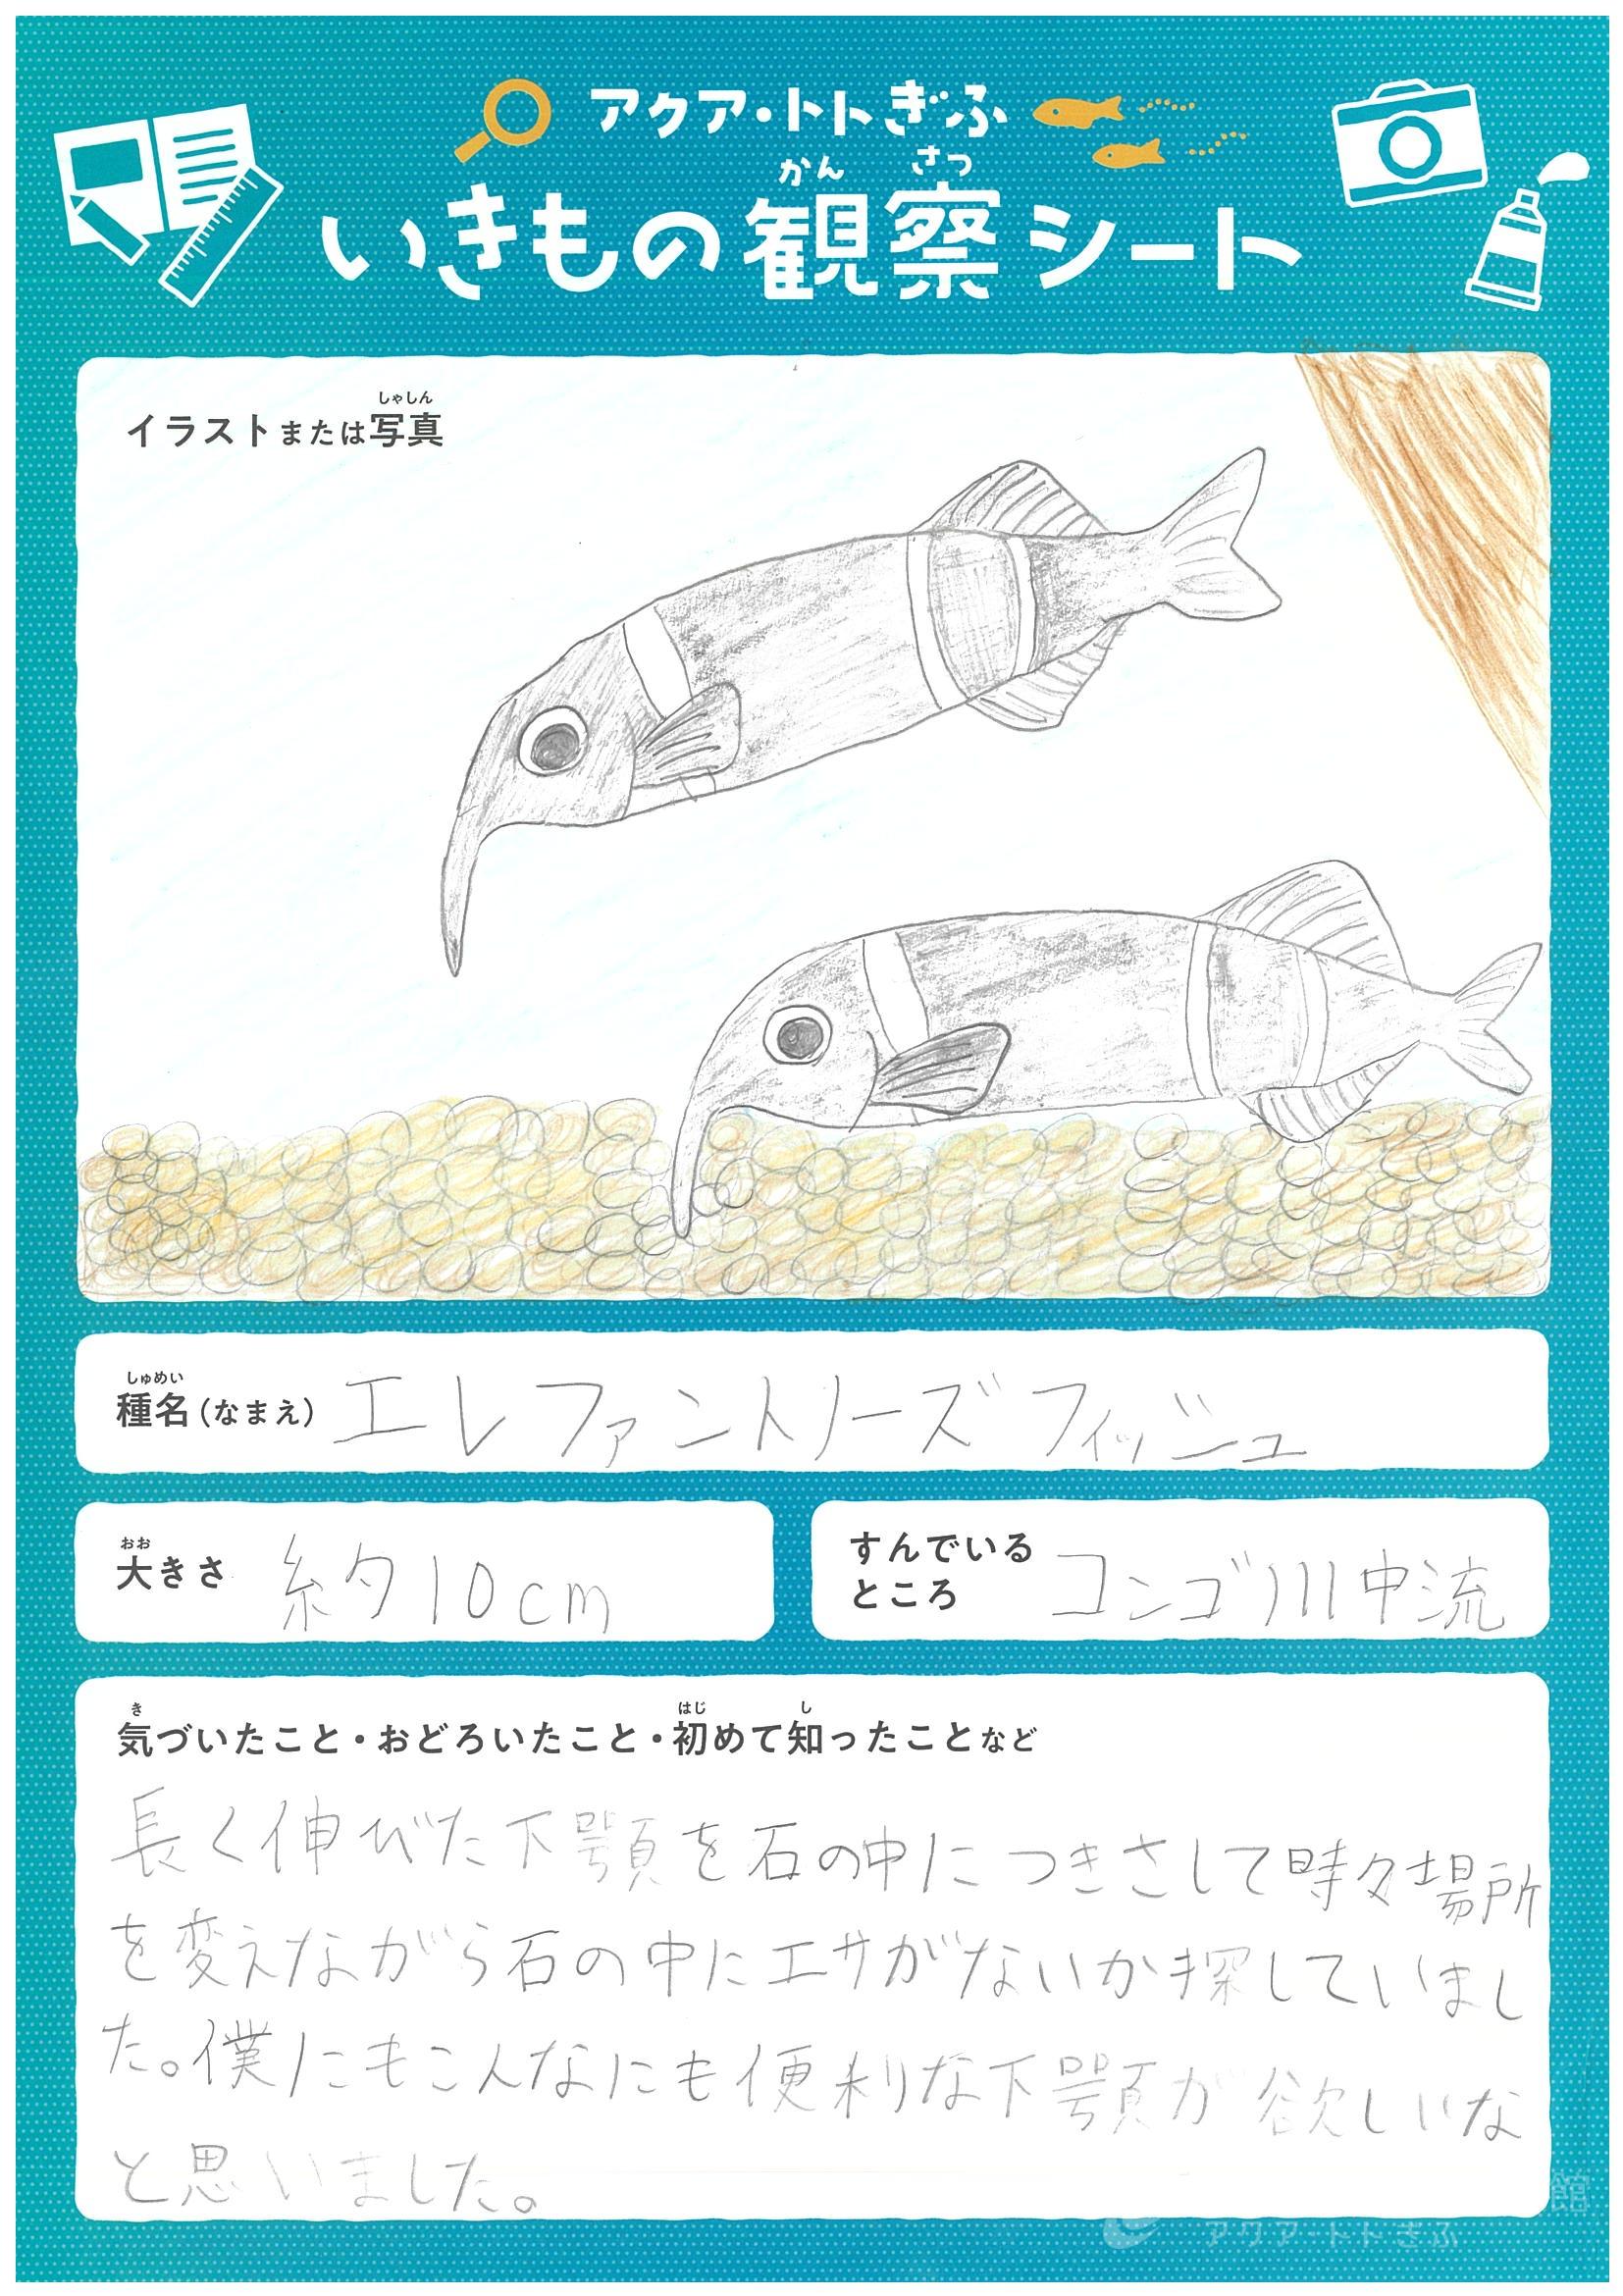 アクア・トトぎふ
かん さつ
いきもの観察シート
しゃしん
イラストまたは写真
しゅめい
種名(なまえ) エレファントノーズフィッシュ
おお
大きさ 約10cm
すんでいる
ところ コンゴ川中流
き はじ し
気づいたこと・おどろいたこと・初めて知ったことなど
長く伸びた下顎を石の中につきさして時々場所
を変えながら石の中にエサがないか探していまし
た。僕にもこんなにも便利な下顎が欲しいな
と思いました。
館
アクア・トトぎふ